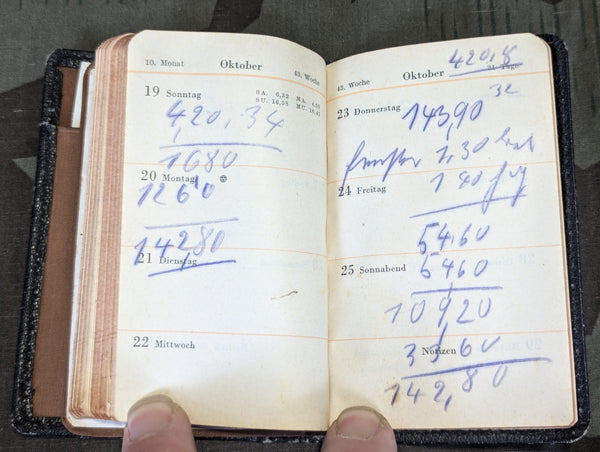 10. Monat Oktober 43. Woche
19 Sonntag
SA. 6,32 MA. 4,58
SU. 16,58 MU. 16,41
420,34
1680
20 Montag
1260
14280
21 Dienstag
22 Mittwoch
43. Woche Oktober 31 Tage
420,8
32
23 Donnerstag 143,90
1,30
24 Freitag
1 40
54,60
25 Sonnabend 5460
10920
Notizen
3360
142,80